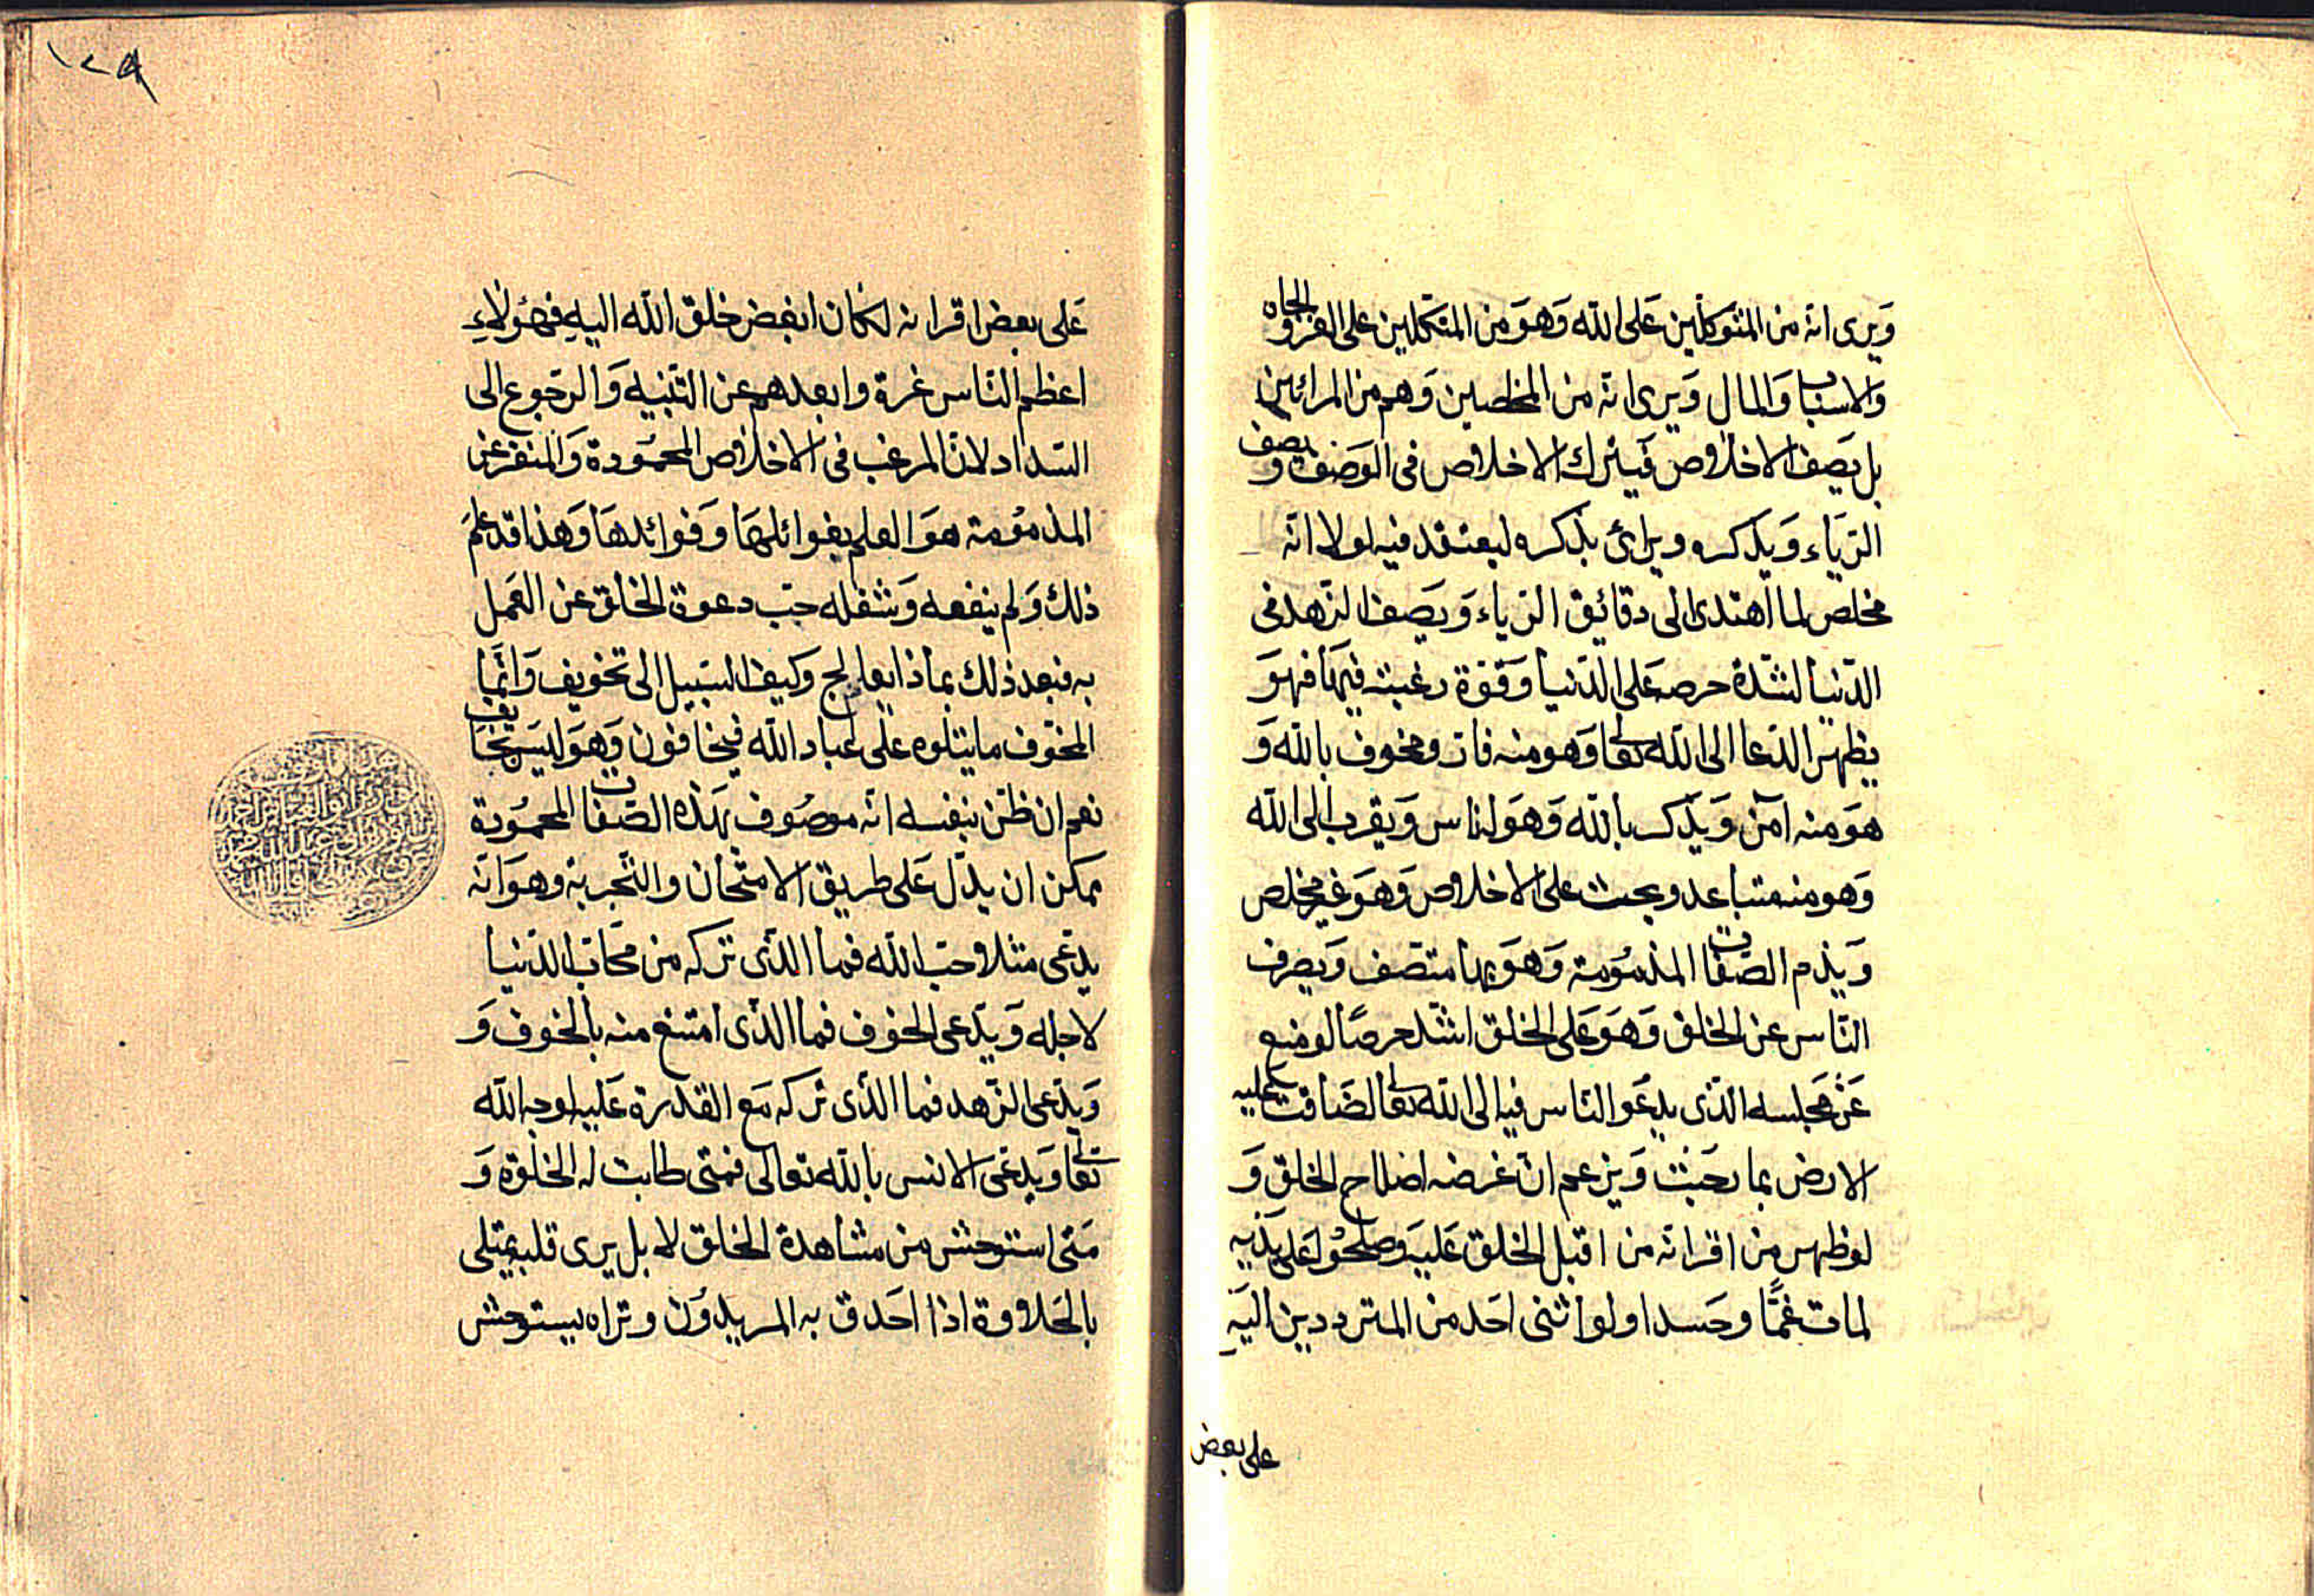 ويرى انه من المتوكلين على الله وهو من المتكلين على العز والجاه
والاسباب والمال ويرى انه من المخلصين وهم من المرائين
بل يصف الاخلاص فيترك الاخلاص فى الوصف ويصف
الرياء ويذكره ويرائ بذكره ليعتقد فيه لولا انه
مخلص لما اهتدى الى دقائق الرياء ويصف الزهد فى
الدنيا لشدة حرصه على الدنيا وقوة رغبته فيها فهو
يظهر الدعا الى الله تعالى وهو منه فار ومخوف بالله و
هو منه آمن ويذكر بالله وهو له ناس ويقرب الى الله
وهو منه متباعد ويحث على الاخلاص وهو غير مخلص
ويذم الصفات المذمومة وهو بها متصف ويصرف
الناس عن الخلق وهو على الخلق اشد حرصًا لو منع
عن مجلسه الذى يدعو الناس فيه الى الله تعالى لضاقت عليه
الارض بما رحبت ويزعم ان غرضه اصلاح الخلق و
لو ظهر من اقرانه من اقبل الخلق عليه وصلحوا على يديه
لمات غمًّا وحسدا ولو اثنى احد من المترددين اليه
على بعض
١٢٩
على بعض اقرانه لكان ابغض خلق الله اليه فهؤلاء
اعظم الناس غرة وابعدهم عن التنبيه والرجوع الى
السداد لان المرغب فى الاخلاص المحمودة والمنفر عن
المذمومة هو العلم بغوائلها وفوائدها وهذا قد علم
ذلك ولم ينفعه وشغله حب دعوة الخلق عن العمل
به فبعد ذلك بماذا يعالج وكيف السبيل الى تخويف وانما
المخوف ما يتلوه على عباد الله فيخافون وهو ليس بخائف
نعم ان ظن بنفسه انه موصوف بهذه الصفات المحمودة
يمكن ان يدل على طريق الامتحان والتجربة وهو انه
يدعى مثلا حب الله فما الذى تركه من محاب الدنيا
لاجله ويدعى الخوف فما الذى امتنع منه بالخوف و
ويدعى الزهد فما الذى تركه مع القدرة عليه لوجه الله
تعالى ويدعى الانس بالله تعالى فمتى طابت له الخلوة و
متى استوحش من مشاهدة الخلق لا بل يرى قلبه يمتلى
بالحلاوة اذا احدق به المريدون وتراه يستوحش